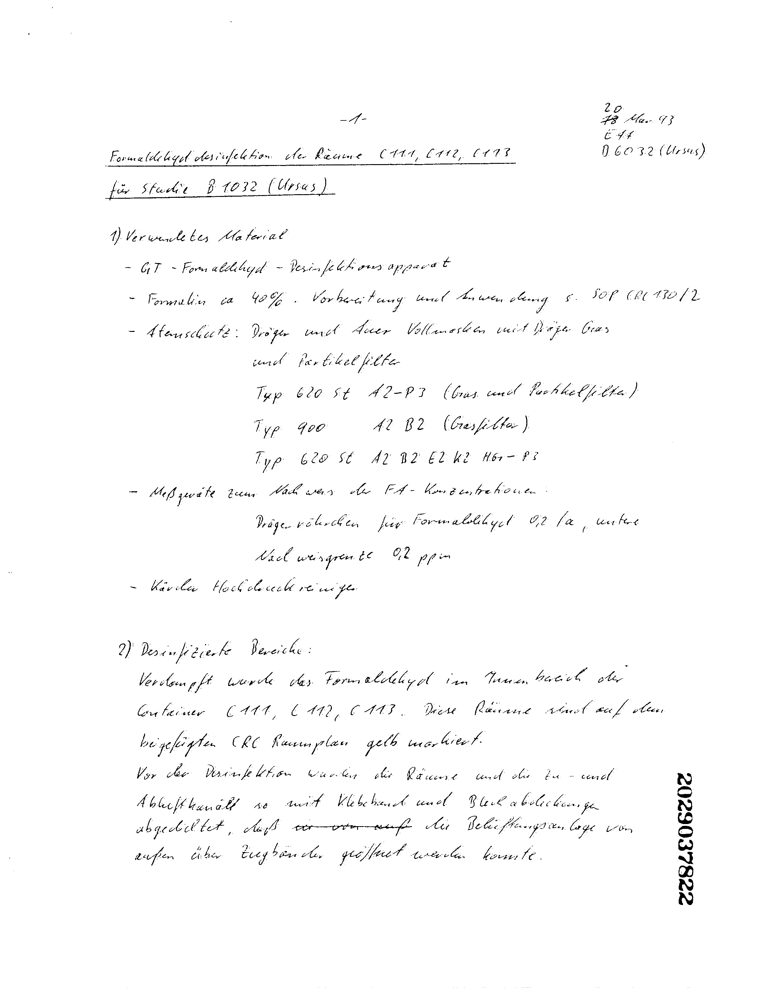 -1-
20
18 Mar 93
E11
B6032 (Ursus)
Formaldehyddesinfektion der Räume C111, C112, C113
für Studie B1032 (Ursus)
1) Verwendetes Material
- GT - Formaldehyd - Desinfektionsapparat
- Formalin ca 40%. Vorbereitung und Anwendung s. SOP CRC 130/2
- Atemschutz: Dräger und Auer Vollmasken mit Dräger Gas
und Partikelfilter
Typ 620 St A2-P3 (Gas und Partikelfilter)
Typ 900 A2 B2 (Gasfilter)
Typ 620 St A2 B2 E2 K2 HGr-P3
- Meßgeräte zum Nachweis der FA-Konzentrationen:
Drägerröhrchen für Formaldehyd 0,2/a, untere
Nachweisgrenze 0,2 ppm
- Kärcher Hochdruckreiniger
2) Desinfizierte Bereiche:
Verdampft wurde das Formaldehyd im Innenbereich der
Container C111, C112, C113. Diese Räume sind auf dem
beigefügten CRC Raumplan gelb markiert.
Vor der Desinfektion wurden die Räume und die Zu- und
Abluftkanäle so mit Klebeband und Blechabdeckungen
abgedichtet, daß die Belüftungsanlage von
außen über Zugbänder geöffnet werden konnte.
2029037822